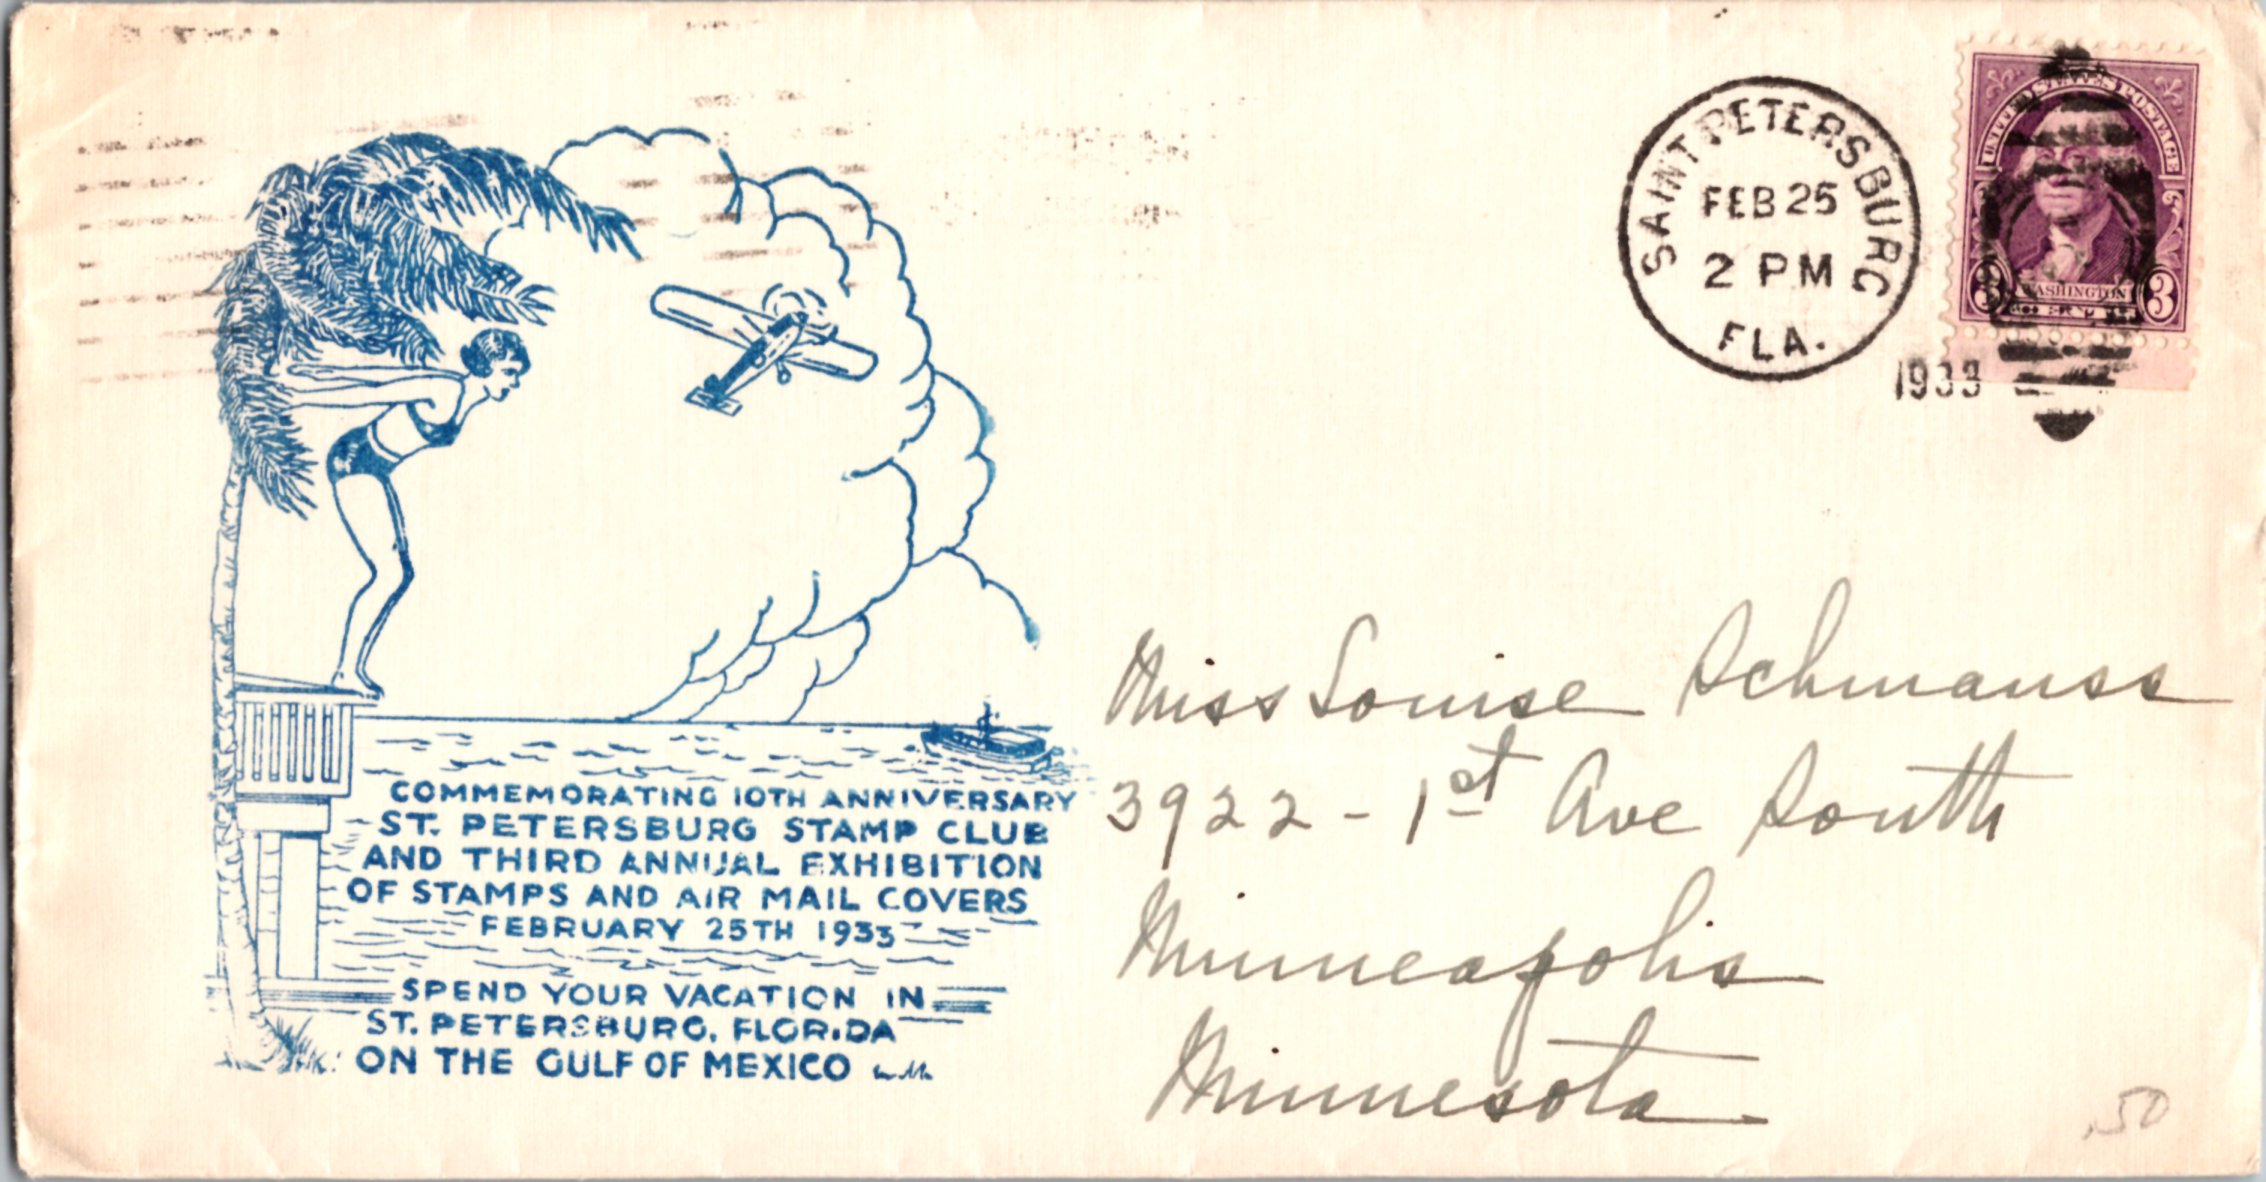 COMMEMORATING 10TH ANNIVERSARY
ST. PETERSBURG STAMP CLUB
AND THIRD ANNUAL EXHIBITION
OF STAMPS AND AIR MAIL COVERS
FEBRUARY 25TH 1933
SPEND YOUR VACATION IN
ST. PETERSBURG, FLORIDA
ON THE GULF OF MEXICO
SAINT PETERSBURG
FEB 25
2 PM
FLA.
1933
UNITED STATES POSTAGE
WASHINGTON
3 3
Miss Louise Schmauss
3922 - 1st Ave South
Minneapolis
Minnesota
.50